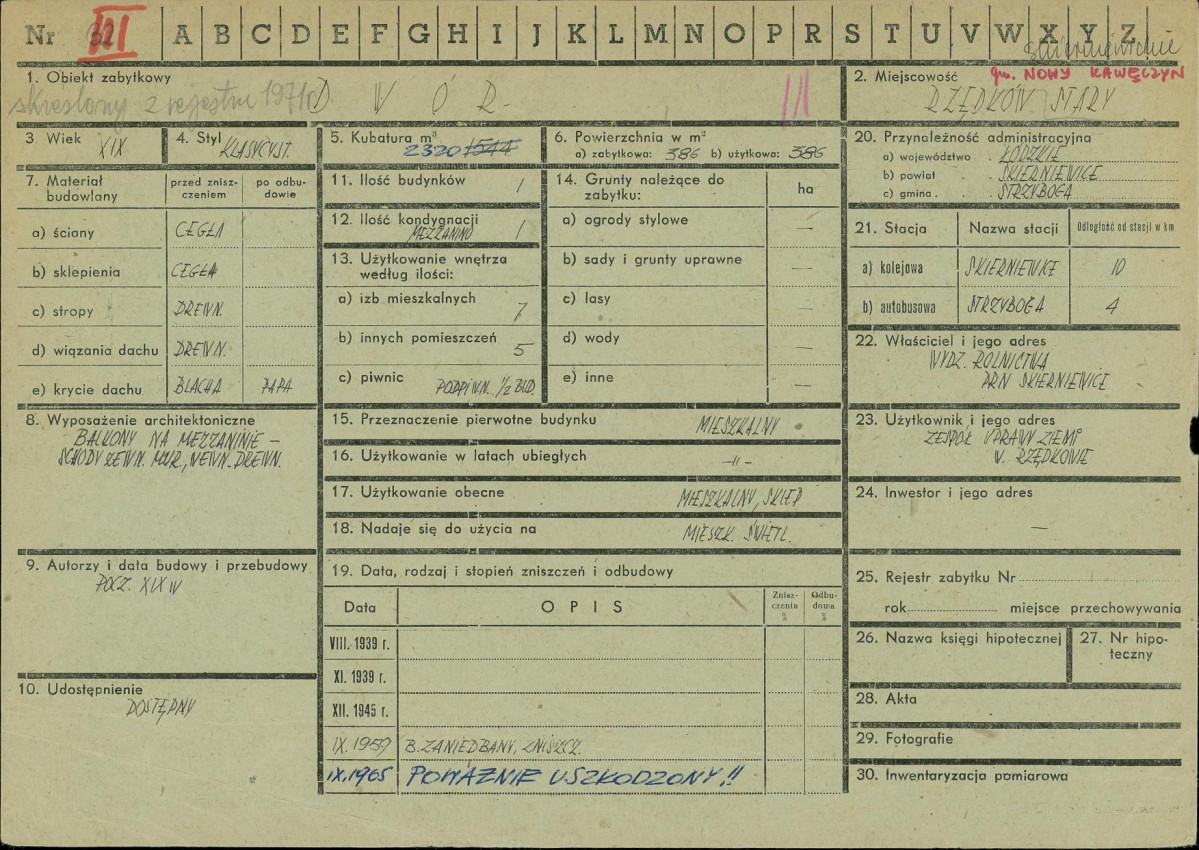 Nr 32 III A B C D E F G H I J K L M N O P R S T U V W X Y Z
skierniewickie
1. Obiekt zabytkowy
skreślony z rejestru 1971 r
D W Ó R
III
2. Miejscowość gm. NOWY KAWĘCZYN
RZĘDKÓW STARY
3 Wiek XIX
4. Styl KLASYCYST.
5. Kubatura m³
2320 1544
6. Powierzchnia w m²
a) zabytkowa: 386 b) użytkowa: 386
7. Materiał budowlany
przed zniszczeniem
po odbudowie
a) ściany CEGŁA
b) sklepienia CEGŁA
c) stropy DREWN.
d) wiązania dachu DREWN.
e) krycie dachu BLACHA PAPA
8. Wyposażenie architektoniczne
BALKONY NA MEZZANINIE –
SCHODY ZEWN. MUR., WEWN. DREWN.
9. Autorzy i data budowy i przebudowy
POCZ. XIX W
10. Udostępnienie
DOSTĘPNY
11. Ilość budynków 1
12. Ilość kondygnacji 1
MEZZANINO
13. Użytkowanie wnętrza
według ilości:
a) izb mieszkalnych 7
b) innych pomieszczeń 5
c) piwnic PODPIWN. 1/2 BUD.
14. Grunty należące do
zabytku:
ha
a) ogrody stylowe —
b) sady i grunty uprawne —
c) lasy —
d) wody —
e) inne —
15. Przeznaczenie pierwotne budynku MIESZKALNY
16. Użytkowanie w latach ubiegłych —"—
17. Użytkowanie obecne MIESZKALNY, SKLEP
18. Nadaje się do użycia na MIESZK. ŚWIETL.
19. Data, rodzaj i stopień zniszczeń i odbudowy
Data
O P I S
Zniszczenia %
Odbudowa %
VIII. 1939 r.
XI. 1939 r.
XII. 1945 r.
IX. 1959 B. ZANIEDBANY, ZNISZCZ.
IX. 1965 POWAŻNIE USZKODZONY!!
20. Przynależność administracyjna
a) województwo . ŁÓDZKIE
b) powiat . . SKIERNIEWICE
c) gmina . . STRZYBOGA
21. Stacja
Nazwa stacji
Odległość od stacji w km
a) kolejowa SKIERNIEWICE 10
b) autobusowa STRZYBOGA 4
22. Właściciel i jego adres
WYDZ. ROLNICTWA
PRN SKIERNIEWICE
23. Użytkownik i jego adres
ZESPÓŁ UPRAWY ZIEMI
W. RZĘDKOWIE
24. Inwestor i jego adres
—
25. Rejestr zabytku Nr
rok miejsce przechowywania
26. Nazwa księgi hipotecznej
27. Nr hipoteczny
28. Akta
29. Fotografie
30. Inwentaryzacja pomiarowa